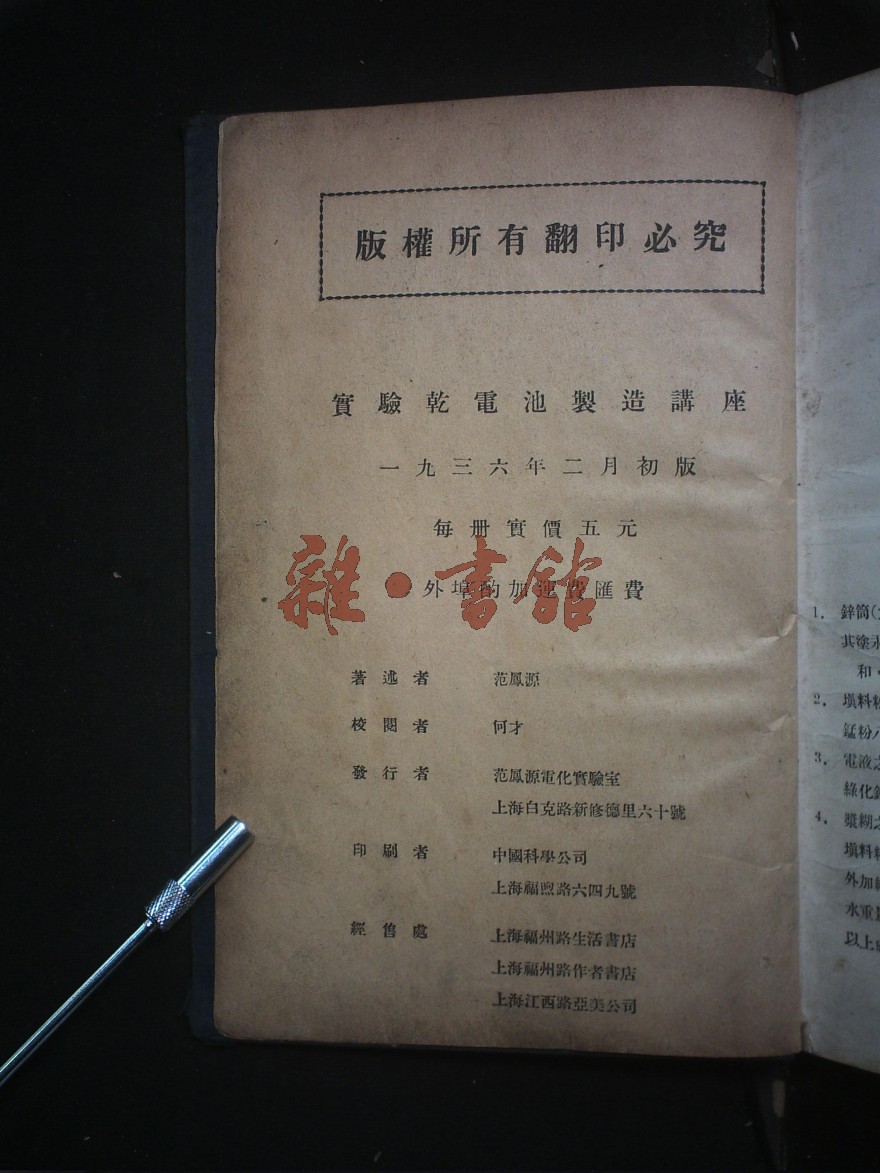 版權所有翻印必究
實驗乾電池製造講座
一九三六年二月初版
每册實價五元
外埠酌加運費匯費
雜·書館
著述者 范鳳源
校閱者 何才
發行者 范鳳源電化實驗室
上海白克路新修德里六十號
印刷者 中國科學公司
上海福煦路六四九號
經售處 上海福州路生活書店
上海福州路作者書店
上海江西路亞美公司
1. 鋅筒(
其塗
和
2. 填料粉
錳粉
3. 電液之
綠化
4. 漿糊之
填料
外加
水重
以上